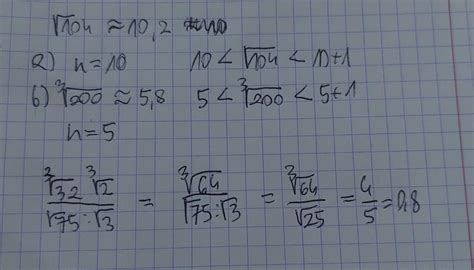 √104 ≈ 10,2
a) n = 10 10 < √104 < 10+1
b) ∛200 ≈ 5,8 5 < ∛200 < 5+1
n = 5
(∛32 ∛2)/(√75 : √3) = ∛64/(√75 : √3) = ∛64/√25 = 4/5 = 0,8